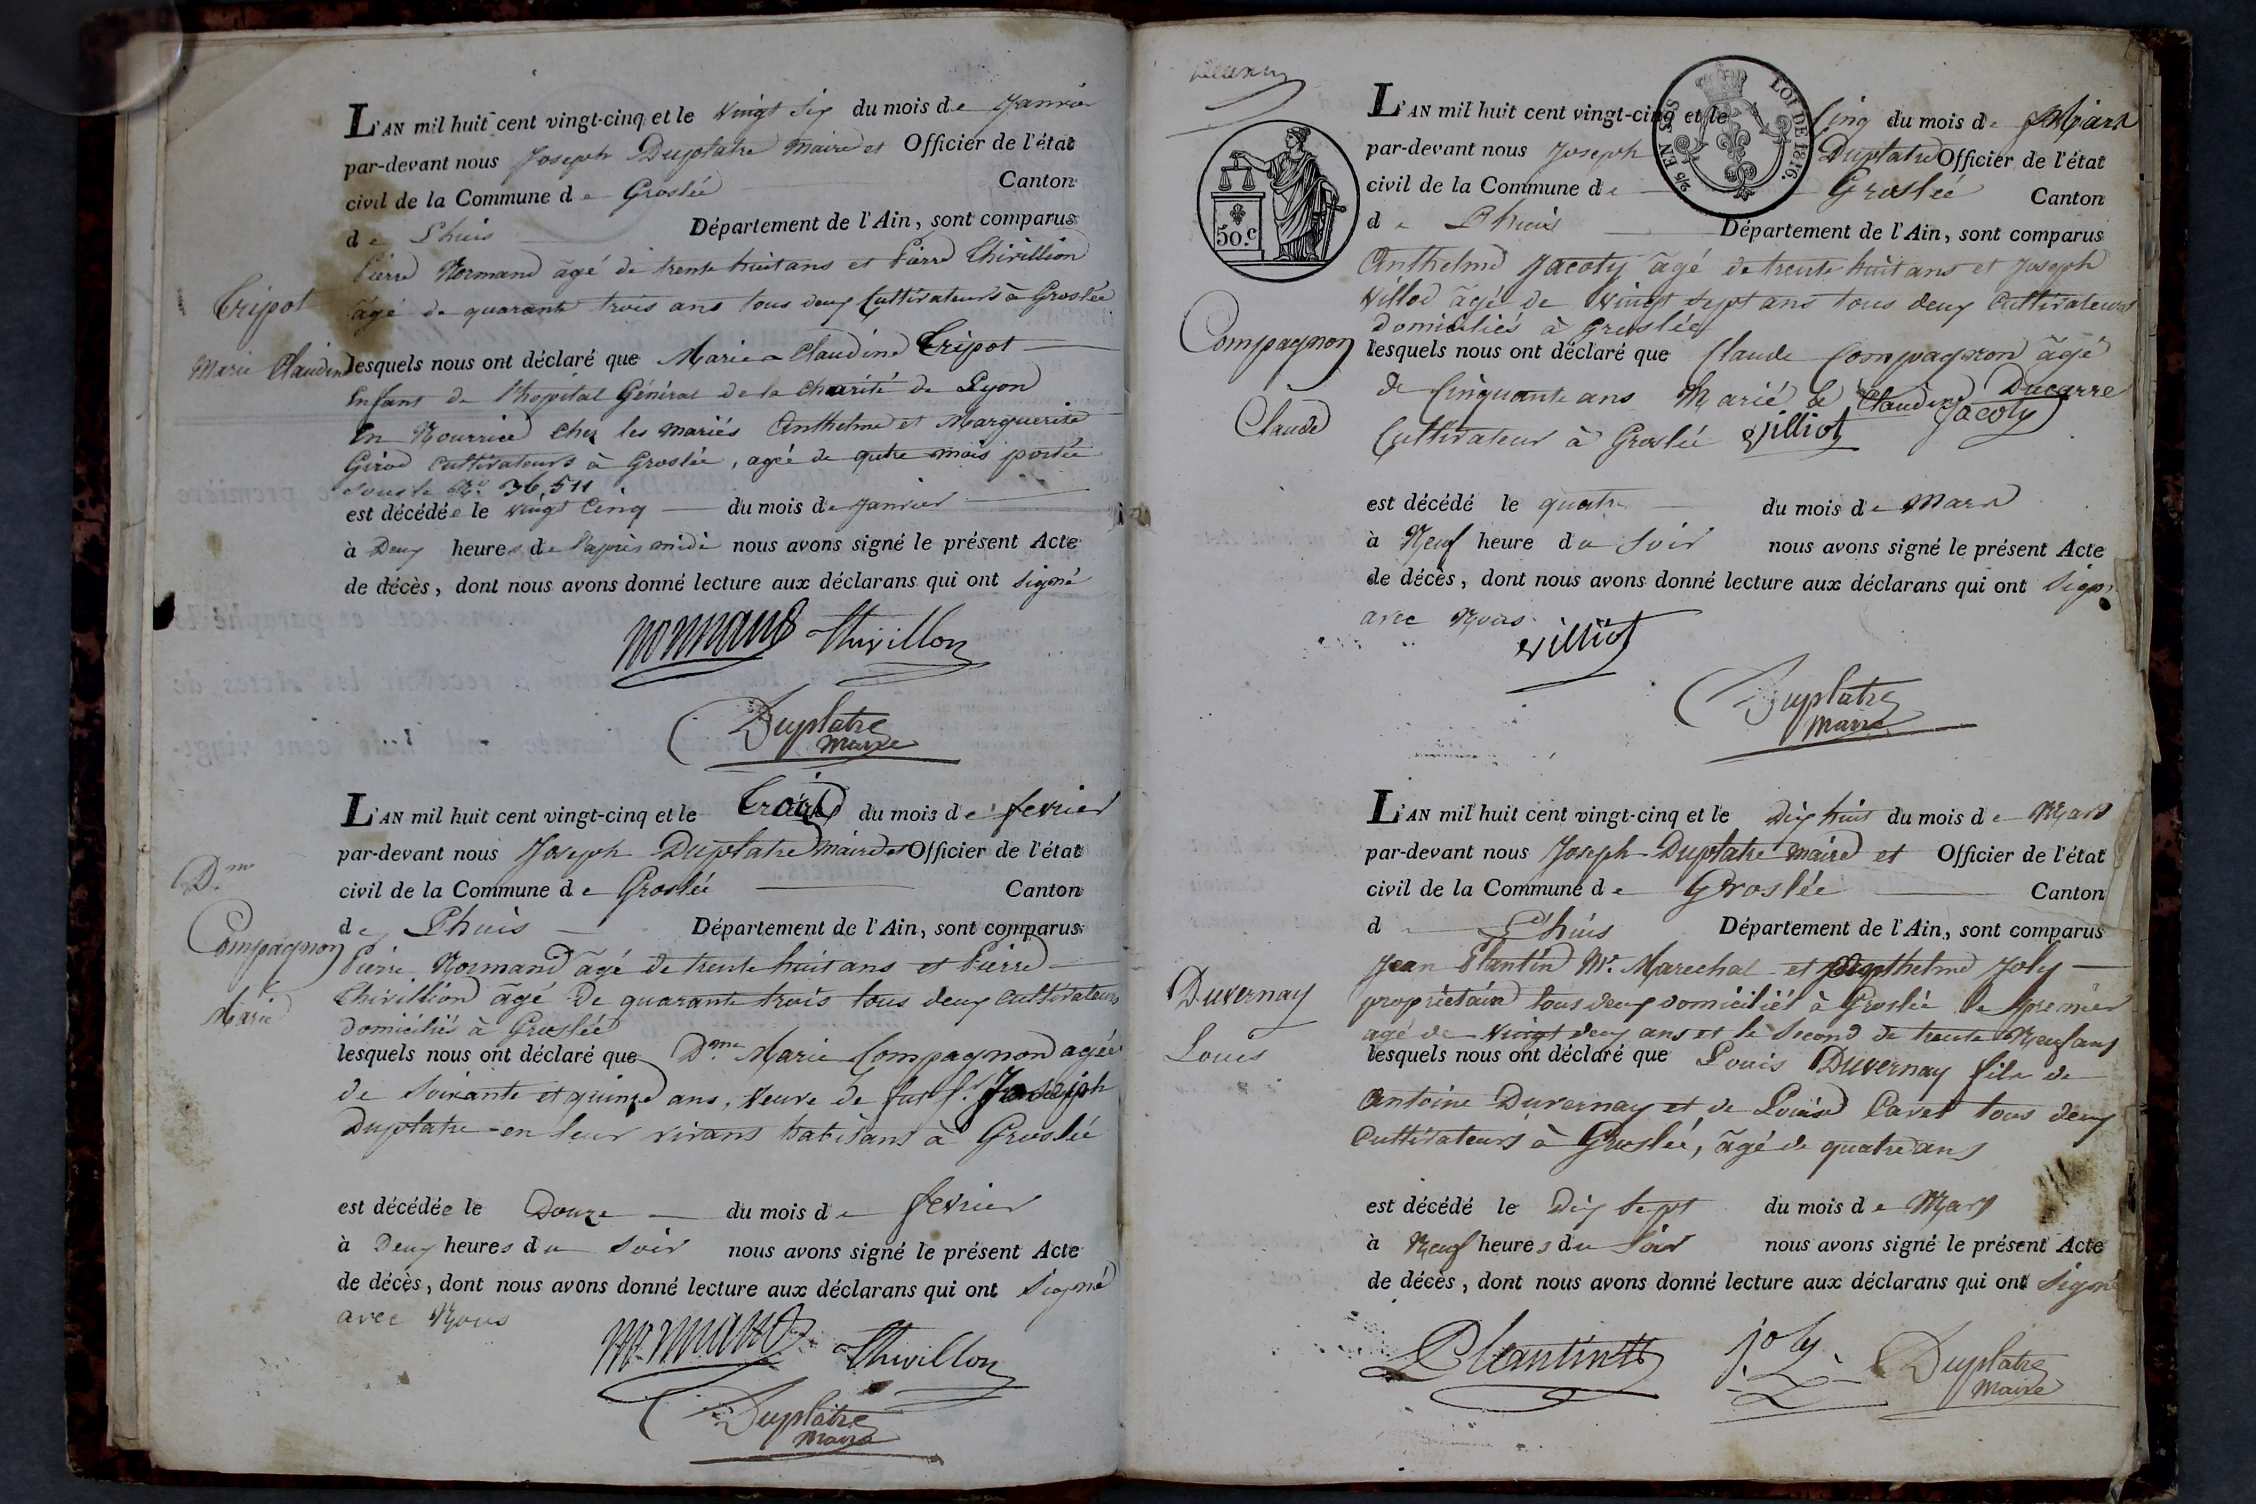 L'AN mil huit cent vingt-cinq et le vingt six du mois de Janvier
par-devant nous Joseph Duplatre maire et Officier de l'état
civil de la Commune de Groslée Canton
de Lhuis Département de l'Ain, sont comparus
Pierre Normand âgé de trente huit ans et Pierre Thivillion
âgé de quarante trois ans tous deux Cultivateurs à Groslée
Tripot
Marie Claudine
lesquels nous ont déclaré que Marie Claudine Tripot
Enfant de l'hopital Général de la Charité de Lyon
En Nourrice Chez les mariés Anthelme et Marguerite
Girod cultivateurs à Groslée, agée de qutre mois portée
sous le No. 36,511
est décédée le vingt Cinq du mois de Janvier
à Deux heures de l'après midi nous avons signé le présent Acte
de décès, dont nous avons donné lecture aux déclarans qui ont signé
normand Thivillon
Duplatre
maire
L'AN mil huit cent vingt-cinq et le du mois de fevrier
par-devant nous Joseph Duplatre maire et Officier de l'état
civil de la Commune de Groslée Canton
de Lhuis Département de l'Ain, sont comparus
Dme
Compagnon
Marie
Pierre Normand âgé de trente huit ans et Pierre
Thivillion âgé de quarante trois tous deux cultivateurs
domiciliés à Groslée
lesquels nous ont déclaré que Dme Marie Compagnon agée
de Soixante et quinze ans, veuve de Joseph
Duplatre en leur vivans habitans à Groslée
est décédée le Douze du mois de fevrier
à Deux heures du soir nous avons signé le présent Acte
de décès, dont nous avons donné lecture aux déclarans qui ont signé
avec Nous
normand Thivillon
Duplatre
maire
50.c
5/5 EN SUS LOI DE 1816.
L'AN mil huit cent vingt-cinq et le Cinq du mois de Mars
par-devant nous Joseph Duplatre Officier de l'état
civil de la Commune de Groslée Canton
de Lhuis Département de l'Ain, sont comparus
Anthelme Jacoty âgé de trente huit ans et Joseph
Villod âgé de vingt sept ans tous deux cultivateurs
domiciliés à Groslée
Compagnon
Claude
lesquels nous ont déclaré que Claude Compagnon âgé
de Cinquante ans Marié à Claudine Ducarre
Cultivateur à Groslée villiot Jacoty
est décédé le quatre du mois de Mars
à Neuf heure du Soir nous avons signé le présent Acte
de décès, dont nous avons donné lecture aux déclarans qui ont signé
avec Nous
villiot
Duplatre
maire
L'AN mil huit cent vingt-cinq et le Dix huit du mois de Mars
par-devant nous Joseph Duplatre maire et Officier de l'état
civil de la Commune de Groslée Canton
d Lhuis Département de l'Ain, sont comparus
Jean Plantin Mr. Marechal et Anthelme Joly
propriétaire tous deux domiciliés à Groslée le premier
agé de vingt deux ans et le Second de trente Neuf ans
Duvernay
Louis
lesquels nous ont déclaré que Louis Duvernay fils de
Antoine Duvernay et de Louise Cavet tous deux
Cultivateurs à Groslée, âgé de quatre ans
est décédé le Dix Sept du mois de Mars
à Neuf heures du Soir nous avons signé le présent Acte
de décès, dont nous avons donné lecture aux déclarans qui ont signé
Plantin joly Duplatre
maire